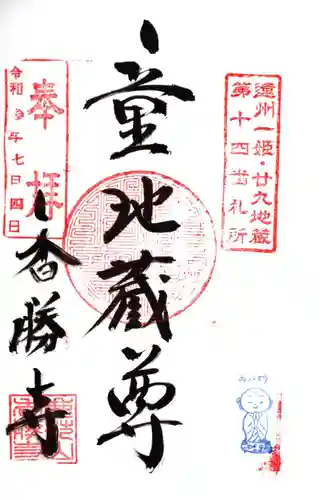 遠州一姫・廿九地蔵
第十四番札所
童地蔵尊
奉拝
令和 年七月四日
香勝寺